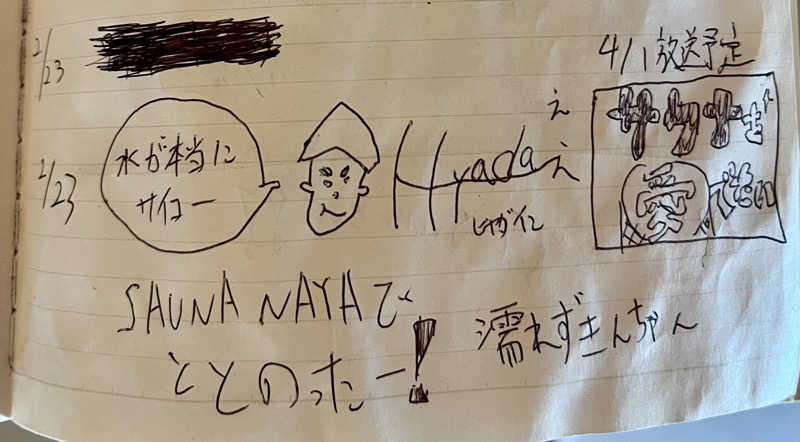 2/23
2/23
水が本当に
サイコー
Hyadain
え
え
4/1放送予定
サウナを
愛でたい
SAUNA NAYAで
ととのったー!
濡れずきんちゃん